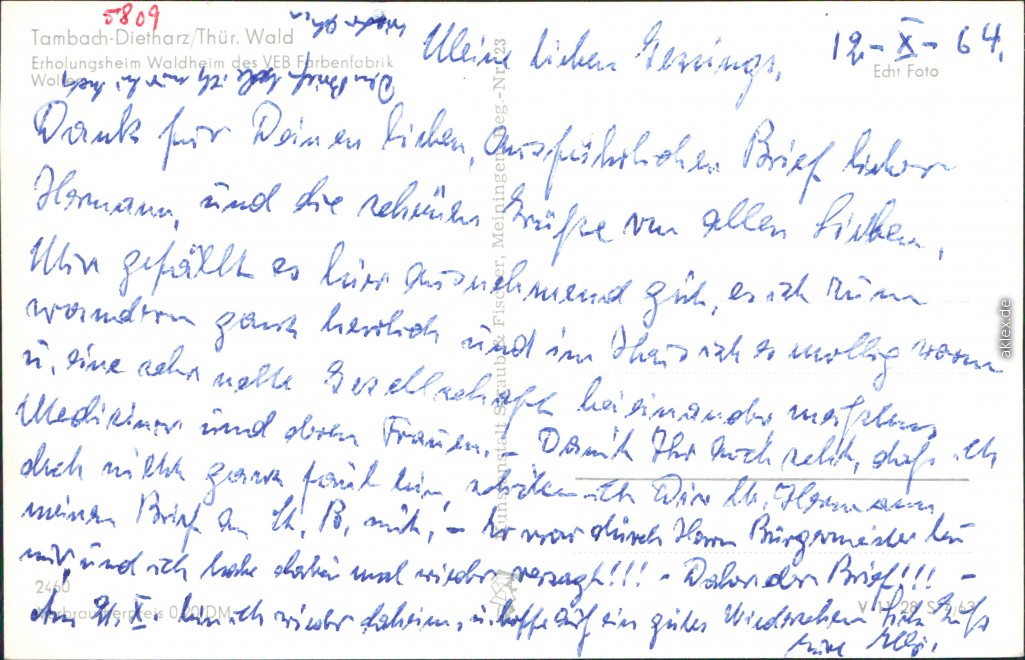 5809
Tambach-Dietharz/Thür. Wald
Erholungsheim Waldheim des VEB Farbenfabrik
Wolfen
Echt Foto
12-X-64.
Meine Lieben Gersings,
Dank für Deinen lieben, ausführlichen Brief lieber
Hermann, und die schönen Grüße von allen Lieben,
Mir gefällt es hier ausnehmend gut, es ist zum
wandern ganz herrlich und im Haus ist es mollig warm
u. eine sehr nette Gesellschaft beieinander, meistens
Mediziner und deren Frauen. – Damit Ihr doch seht, daß ich
doch nicht ganz faul bin, schicke ich Dir lb. Hermann,
meinen Brief an St. B. mit, – er war durch Herrn Bürgermeister bei
mir, und ich habe dabei mal wieder versagt!!! – Daher der Brief!!! –
Am 21. X bin ich wieder daheim, u. hoffe auf ein gutes Wiedersehen
Eure
Kunstanstalt Straub & Fischer, Meiningen
Reg.-Nr. 723
2460
Verbraucherpreis 0,20 DM
V 11 28 S 2/63
aklex.de